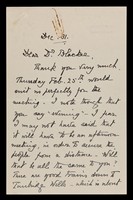 Dec. 31.
Dear Dr. Blacker.
Thank you very much
Thursday Feb. 25th would
suit us perfectly for the
meeting. I note though that
you say "evening". I fear
I may not have said that
it will have to be an afternoon
meeting, in order to secure the
people from a distance. Will
that be all the same to you?
There are good trains down to
Tunbridge Wells - which is about